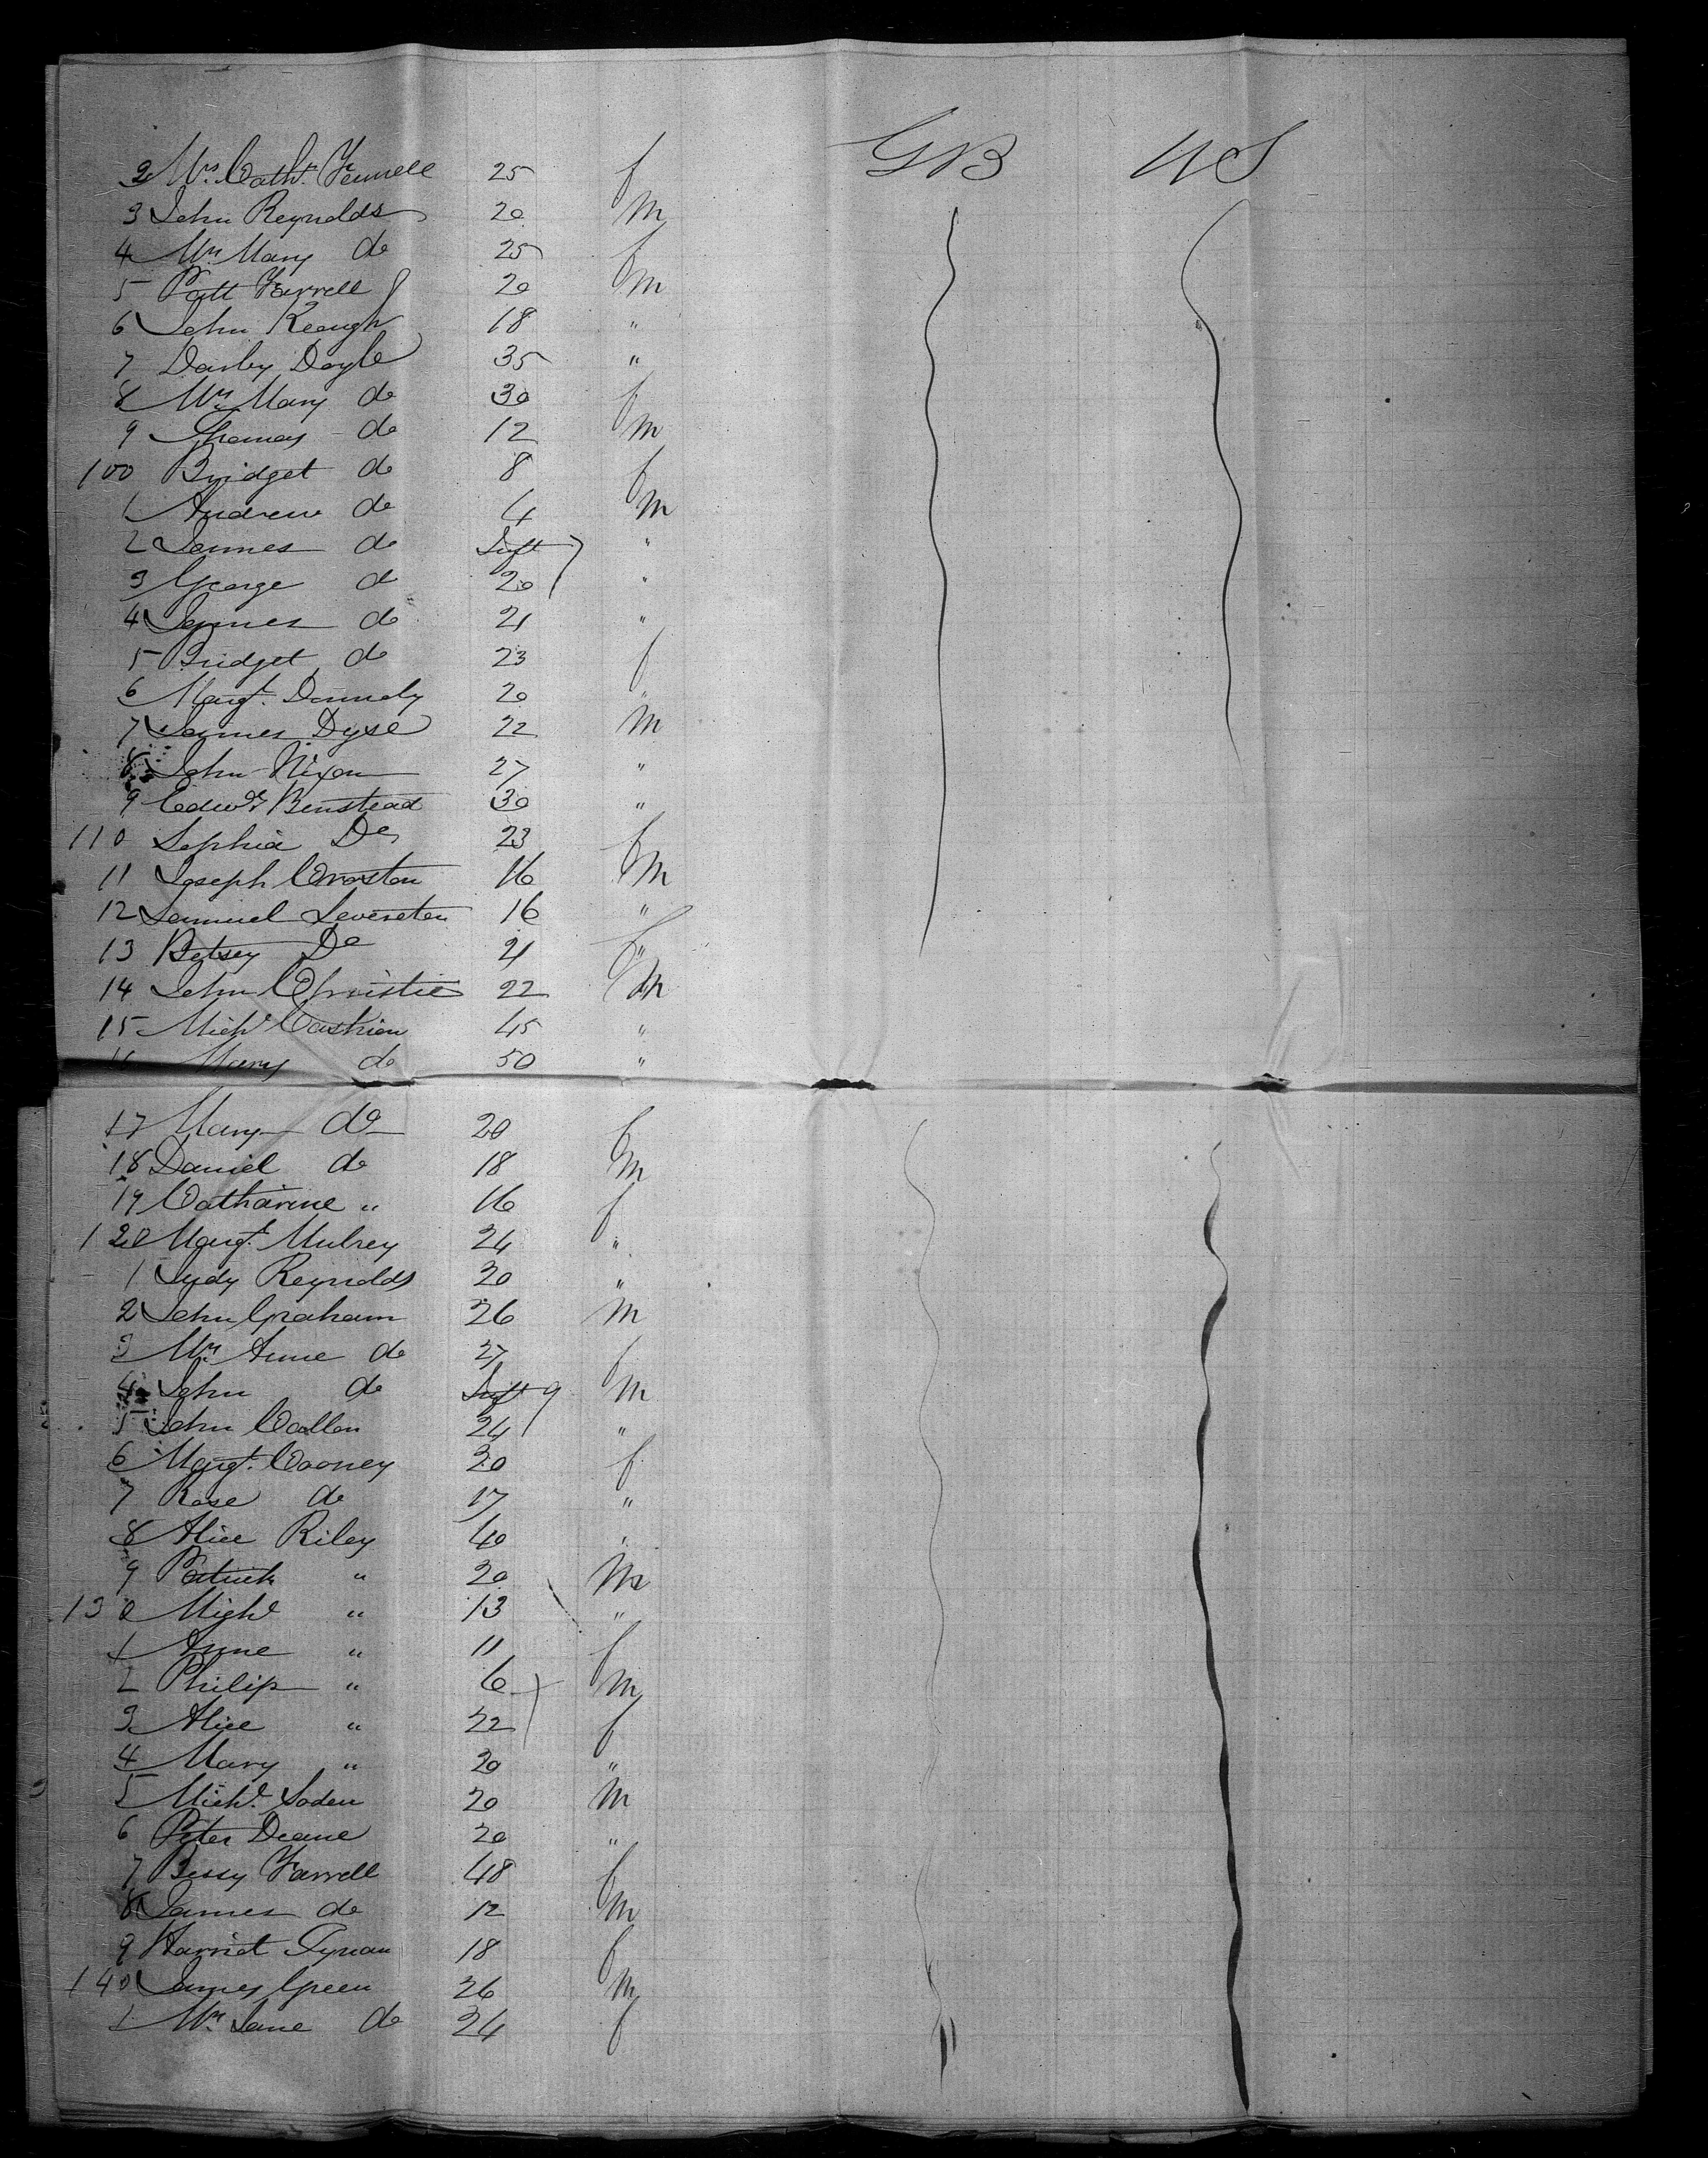 2 Mrs. Cath. Fennell 25 f GB US
3 John Reynolds 20 m
4 Mrs Mary do 25 f
5 Patt Farrell 20 m
6 John Keough 18 "
7 Darby Doyle 35 "
8 Mrs Mary do 30 f
9 Thomas do 12 m
100 Bridget do 8 f
1 Andrew do 4 m
2 James do Inft "
3 George do 20 "
4 James do 21 "
5 Bridget do 23 f
6 Margt. Donnely 20 "
7 James Dyse 22 m
8 John Nixon 27 "
9 Edwd. Benstead 30 "
110 Sophia Do 23 f
11 Joseph 16 m
12 Samuel Leverston 16 "
13 Betsey Do 21 f "
14 John Christie 22 m
15 Michl 45 "
16 Mary do 50 "
17 Mary do 20 f
18 Daniel do 18 m
19 Catharine " 16 f
120 Margt. Mulrey 24 "
1 Judy Reynolds 20 "
2 John Graham 26 m
3 Mrs Anne do 27 f
4 John do Inft m
5 John Callen 24 "
6 Margt. Cooney 20 f
7 Rose do 17 "
8 Alice Riley 40 "
9 Patrick " 20 m
130 Michl " 13 "
1 Anne " 11 f
2 Philip " 6 m
3 Alice " 22 f
4 Mary " 20 "
5 Michl. Soden 20 m
6 Peter Deane 20 "
7 Bessy Farrell 48 f
8 James do 12 m
9 Harriet Tynan 18 f
140 James Green 26 m
1 Mrs. Jane do 24 f "